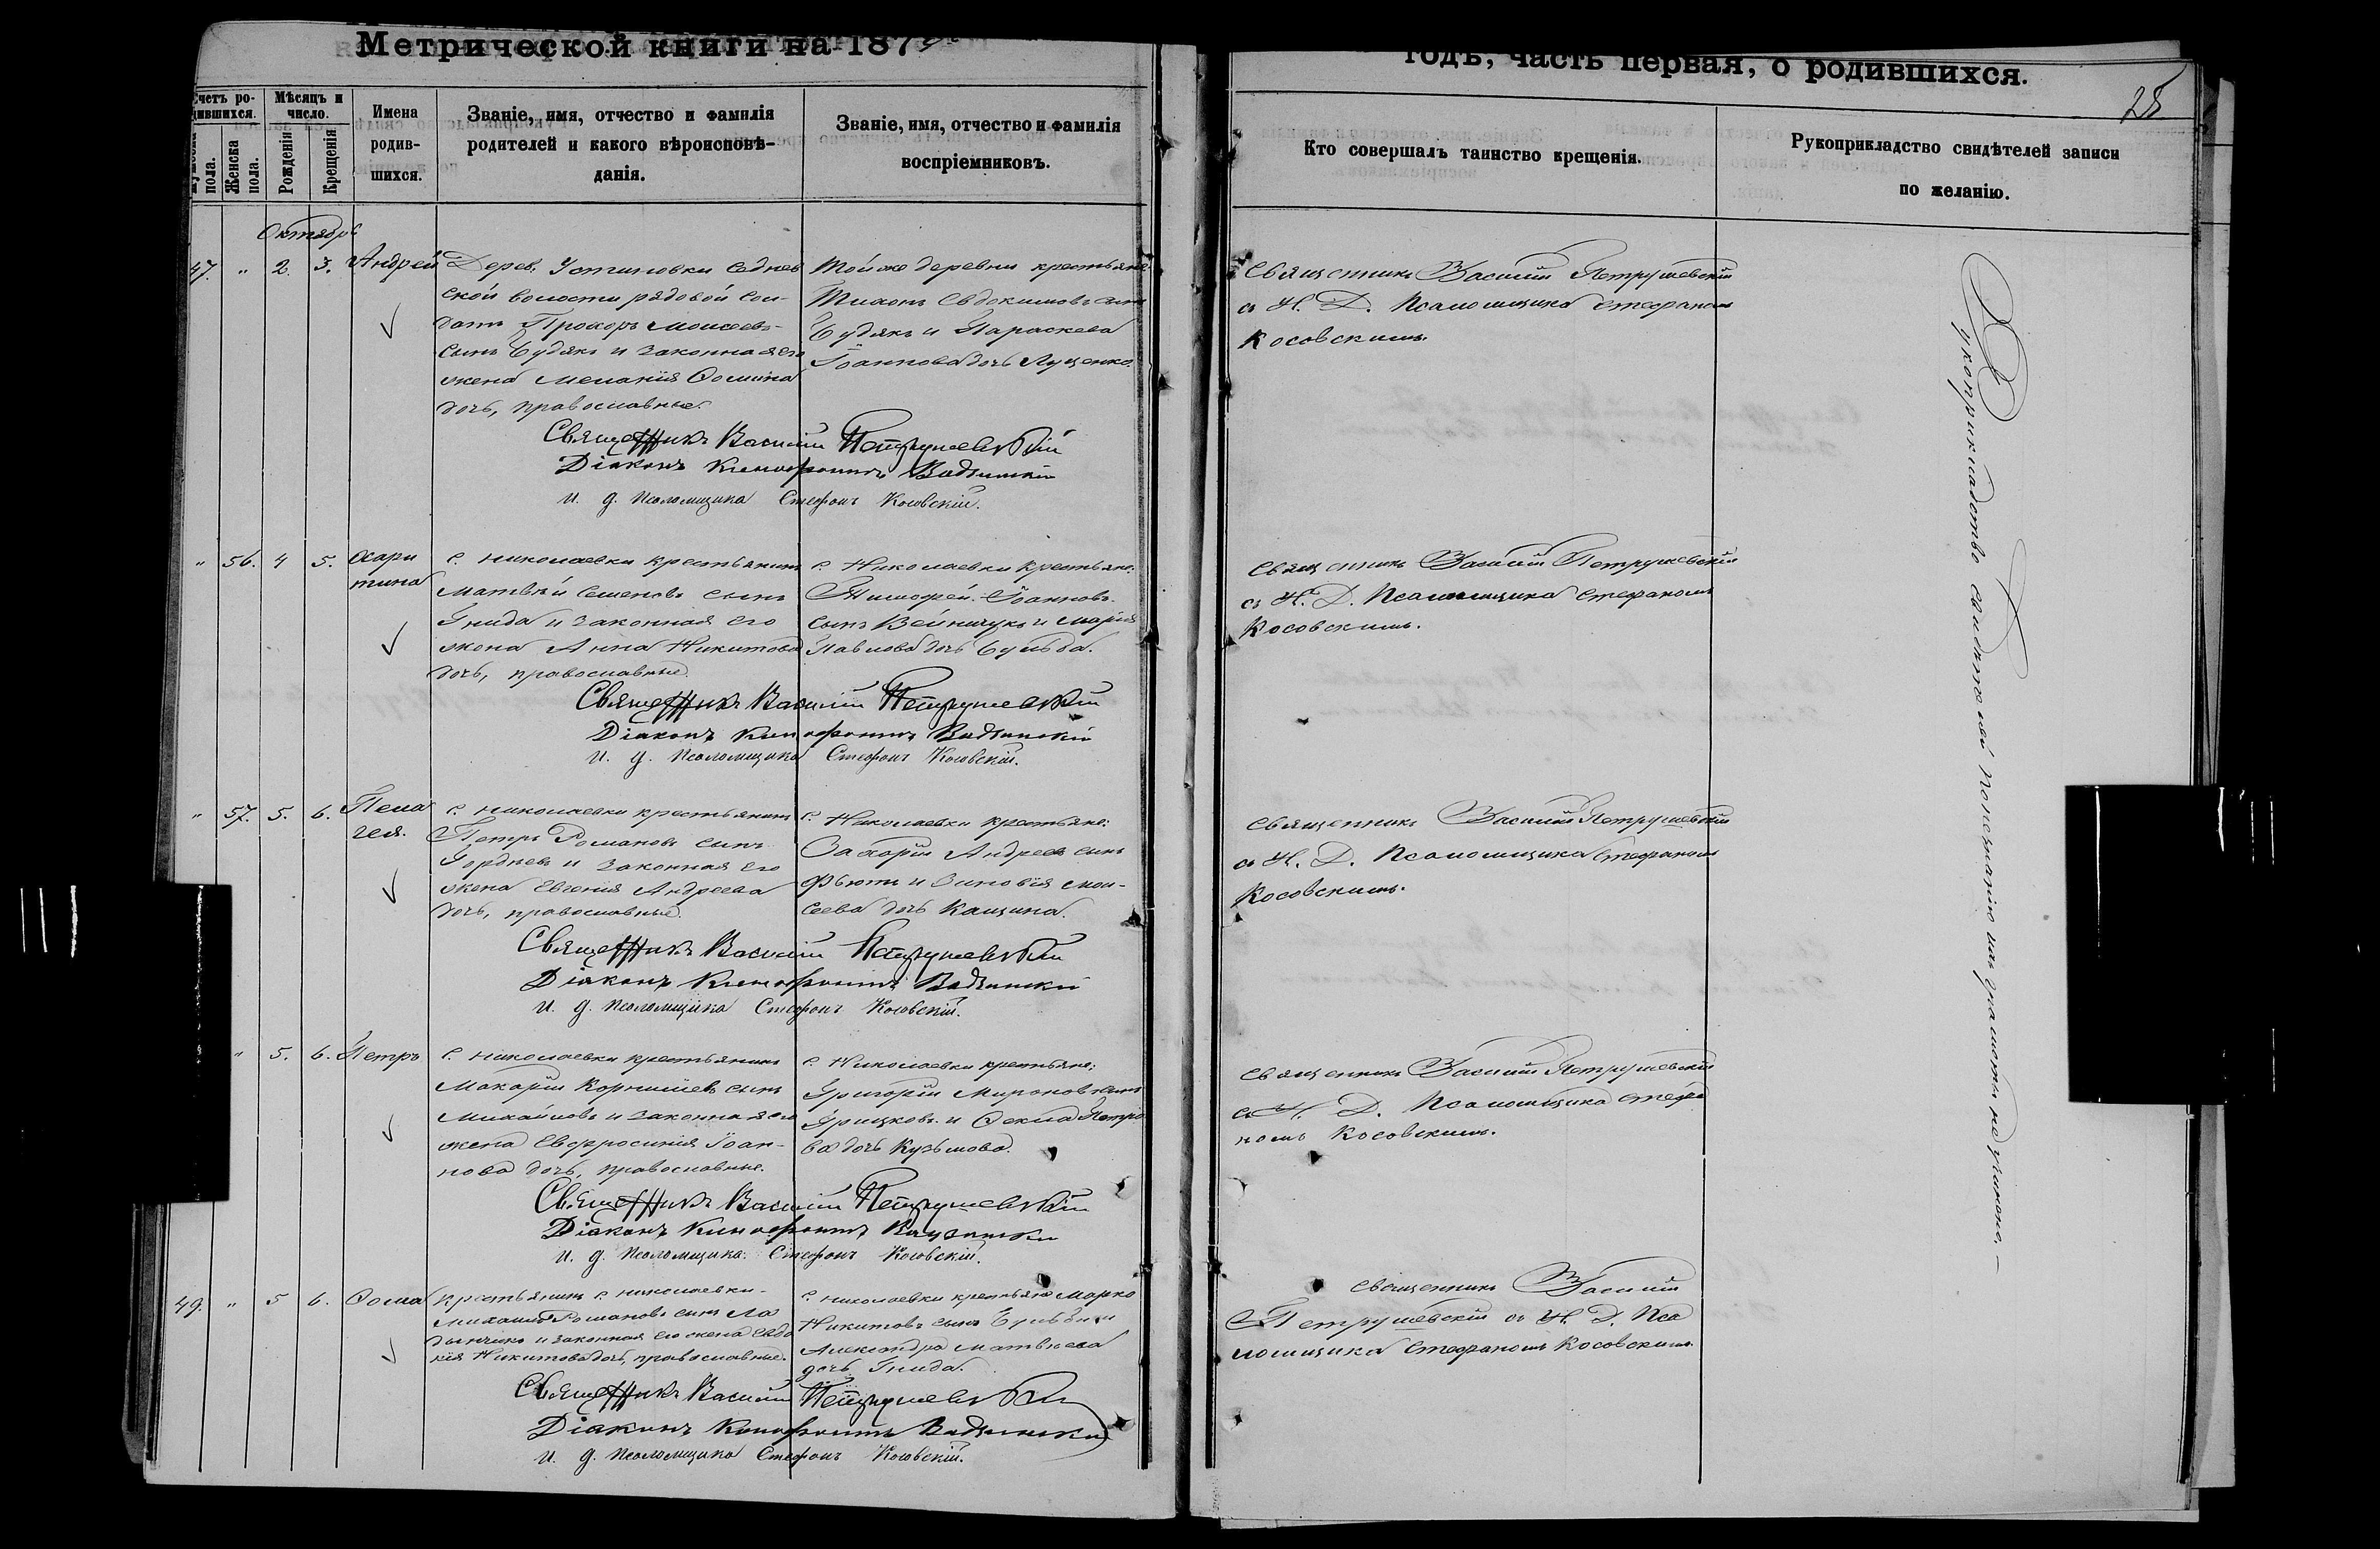 Метрической книги на 187
годъ, часть первая, о родившихся.
28
Счетъ родившихся.
Мѣсяцъ и число.
Имена родившихся.
Званіе, имя, отчество и фамилія родителей и какого вѣроисповѣданія.
Званіе, имя, отчество и фамилія воспріемниковъ.
Кто совершалъ таинство крещенія.
Рукоприкладство свидѣтелей записи по желанію.
пола.
Женска пола.
Рожденія
Крещенія
Октябрь
47. " 2. 3. Андрей
Дерев. Устиновки Седнев
ской волости рядовой сол-
датъ Прохоръ Моисеевъ
сынъ Будякъ и законная его
жена Меланія Ѳомина
дочь, православные.
Той же деревни крестьяне
Тихонъ Евдокимовъ сынъ
Будякъ и Параскева
Іоаннова дочь Луценко.
Священникъ Василій Петрушевскій
съ И. Д. Псаломщика Стефаномъ
Косовскимъ.
Священникъ Василій Петрушевскій
Діаконъ Ксенофонтъ
и. д. Псаломщика Стефанъ Косовскій.
" 56. 4 5. Хари
тина
С. Николаевки крестьянинъ
Матвѣй Семеновъ сынъ
Гнида и законная его
жена Анна Никитова
дочь, православные.
С. Николаевки крестьяне:
Тимофей Іоанновъ
сынъ Вейничукъ и Марія
Павлова дочь Бульба.
Священникъ Василій Петрушевскій
съ И. Д. Псаломщика Стефаномъ
Косовскимъ.
Священникъ Василій Петрушевскій
Діаконъ Ксенофонтъ
и. д. Псаломщика Стефанъ Косовскій.
" 57. 5. 6. Пела
гея.
С. Николаевки крестьянинъ
Петръ Романовъ сынъ
Гордѣевъ и законная его
жена Евгенія Андреева
дочь, православные.
С. Николаевки крестьяне:
Захарій Андреевъ сынъ
и Зиновія Мои-
сеева дочь Кащина.
Священникъ Василій Петрушевскій
съ И. Д. Псаломщика Стефаномъ
Косовскимъ.
Священникъ Василій Петрушевскій
Діаконъ Ксенофонтъ
и. д. Псаломщика Стефанъ Косовскій.
" 5. 6. Петръ
С. Николаевки крестьянинъ
Макарій Корниліевъ сынъ
Михайловъ и законная его
жена Евфросинія Іоан-
нова дочь, православные.
С. Николаевки крестьяне:
Григорій Мироновъ сынъ
Грицковъ и Ѳекла Петро
ва дочь Кузьмова.
Священникъ Василій Петрушевскій
съ И. Д. Псаломщика Стефа
номъ Косовскимъ.
Священникъ Василій Петрушевскій
Діаконъ Ксенофонтъ
и. д. Псаломщика Стефанъ Косовскій.
49. " 5 6. Ѳома
Крестьянинъ с. Николаевки
Михаилъ Романовъ сынъ Ла
и законная его жена Евдо
кія Никитова дочь, православные.
С. Николаевки крестьяне Марко
Никитовъ сынъ Бульба и
Александра Матвѣева
дочь Гнида.
Священникъ Василій
Петрушевскій съ И. Д. Пса
ломщика Стефаномъ Косовскимъ.
Священникъ Василій Петрушевскій
Діаконъ Ксенофонтъ
и. д. Псаломщика Стефанъ Косовскій.
Рукоприкладство свидѣтелей по незнанію ихъ грамоты не учинено.